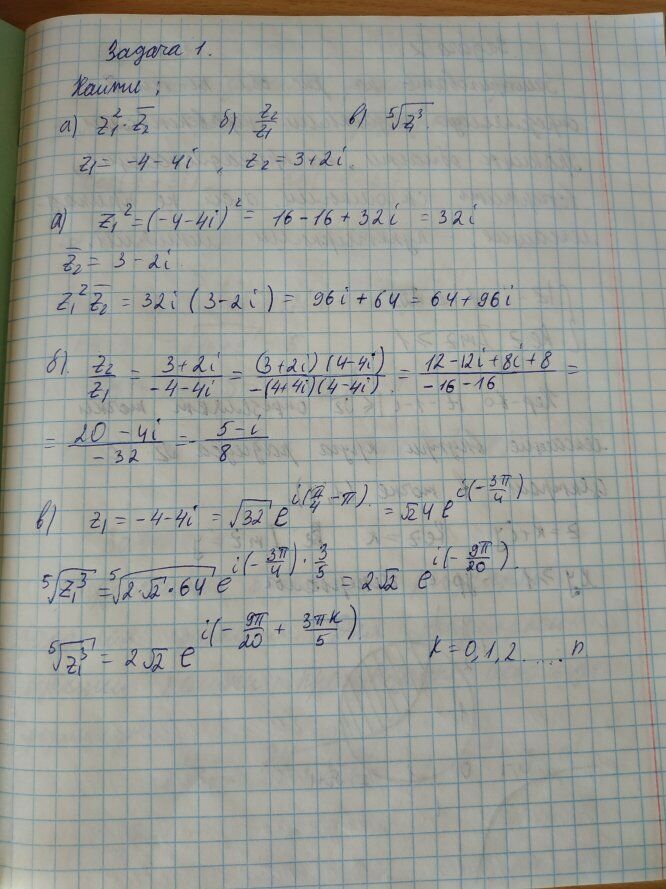 Задача 1.
Найти:
а) z₁²·z̅₂ б) z₂/z₁ в) ⁵√(z₁³)
z₁ = -4-4i, z₂ = 3+2i.
а) z₁² = (-4-4i)² = 16-16+32i = 32i
z̅₂ = 3-2i.
z₁² z̅₂ = 32i(3-2i) = 96i+64 = 64+96i
б). z₂/z₁ = (3+2i)/(-4-4i) = (3+2i)(4-4i)/(-(4+4i)(4-4i)) = (12-12i+8i+8)/(-16-16) =
= (20-4i)/(-32) = -(5-i)/8
в) z₁ = -4-4i = √32 e^(i(π/4-π)). = √2 4 e^(i(-3π/4))
⁵√(z₁³) = ⁵√(2·√2·64) e^(i(-3π/4)·3/5) = 2√2 e^(i(-9π/20)).
⁵√(z₁³) = 2√2 e^(i(-9π/20 + 3πk/5)) k=0,1,2.....n